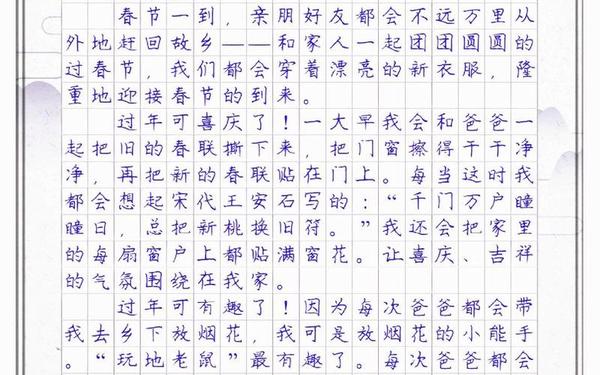 春节一到，亲朋好友都会不远万里从
外地赶回故乡——和家人一起团团圆圆的
过春节，我们都会穿着漂亮的新衣服，隆
重地迎接春节的到来。
过年可喜庆了！一大早我会和爸爸一
起把旧的春联撕下来，把门窗擦得干干净
净，再把新的春联贴在门上。每当这时我
都会想起宋代王安石写的：“千门万户曈
曈日，总把新桃换旧符。”我还会把家里
的每扇窗户上都贴满窗花。让喜庆、吉祥
的气氛围绕在我家。
过年可有趣了！因为每次爸爸都会带
我去乡下放烟花，我可是放烟花的小能手
。“玩地老鼠”最有趣了。每次爸爸都会